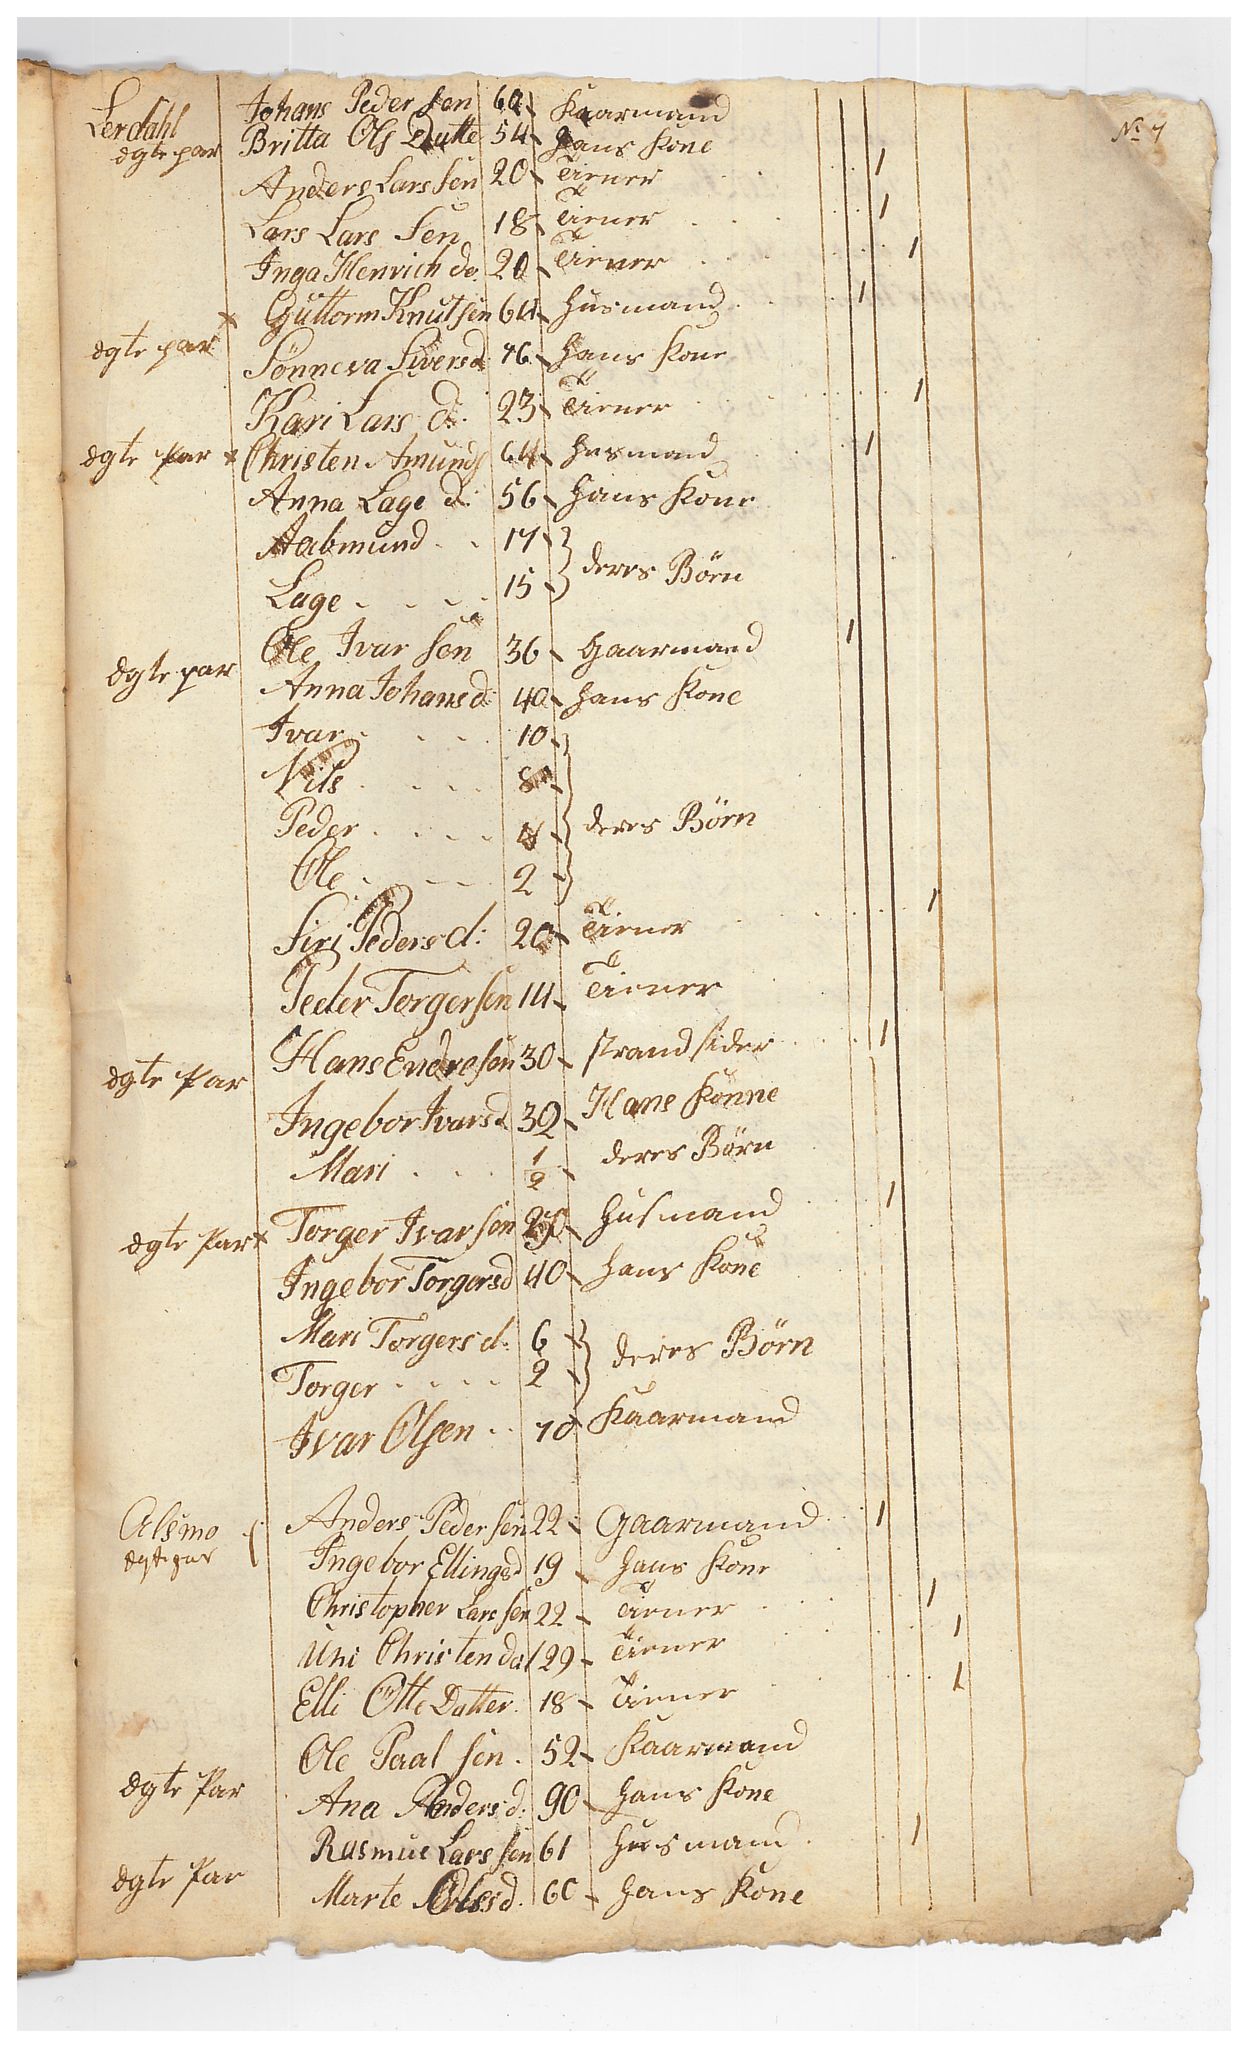 No 7
Lerdahl Johans Peder sen 60 Kaarmand
ægte par Britta Ols Datte 54 hans Kone
Anders Lars sen 20 Tiener 1
Lars Lars sen 18 Tiener 1
Inga Henrich do 20 Tiener 1
x Guttorm Knutsen 64 huusmand 1
ægte par Sönneva Siversd 46 hans Kone
Kari Lars d: 23 Tiener 1
ægte Par x Christen Amunds 64 husmand 1
Anna Lage d: 56 hans Kone
Aabmund 17
deres Börn
Lage 15
Ole Ivar sen 36 Gaarmand 1
ægte par Anna Johansd: 40 hans Kone
Ivar 10
Nils 8
Peder 4 deres Börn
Ole 2
Siri Pedersd: 20 Tiener 1
Peder Torgersen 14 Tiener
Hans Endresen 30 strandsider 1
ægte Par Ingebor Ivarsd 32 Hans Könne
Mari 1/2 deres Börn
ægte Par x Torger Ivarsen husmand 1
Ingebor Torgersd 40 hans Kone
Mari Torgersd: 6 deres Börn
Torger 2
Ivar Olsen 70 Kaarmand
Alsmo Anders Pedersen 22 Gaarmand 1
ægte par Ingebor Ellingsd 19 hans Kone
Christopher Lars sen 22 Tiener 1
Uni Christen dat 29 Tiener 1
Elli Otte Datter 18 Tiener 1
Ole Paal sen 52 Kaarmand
ægte Par Ana Andersd: 90 hans Kone
Rasmus Lars sen 61 husmand 1
ægte Par Marte Olesd. 60 hans Kone